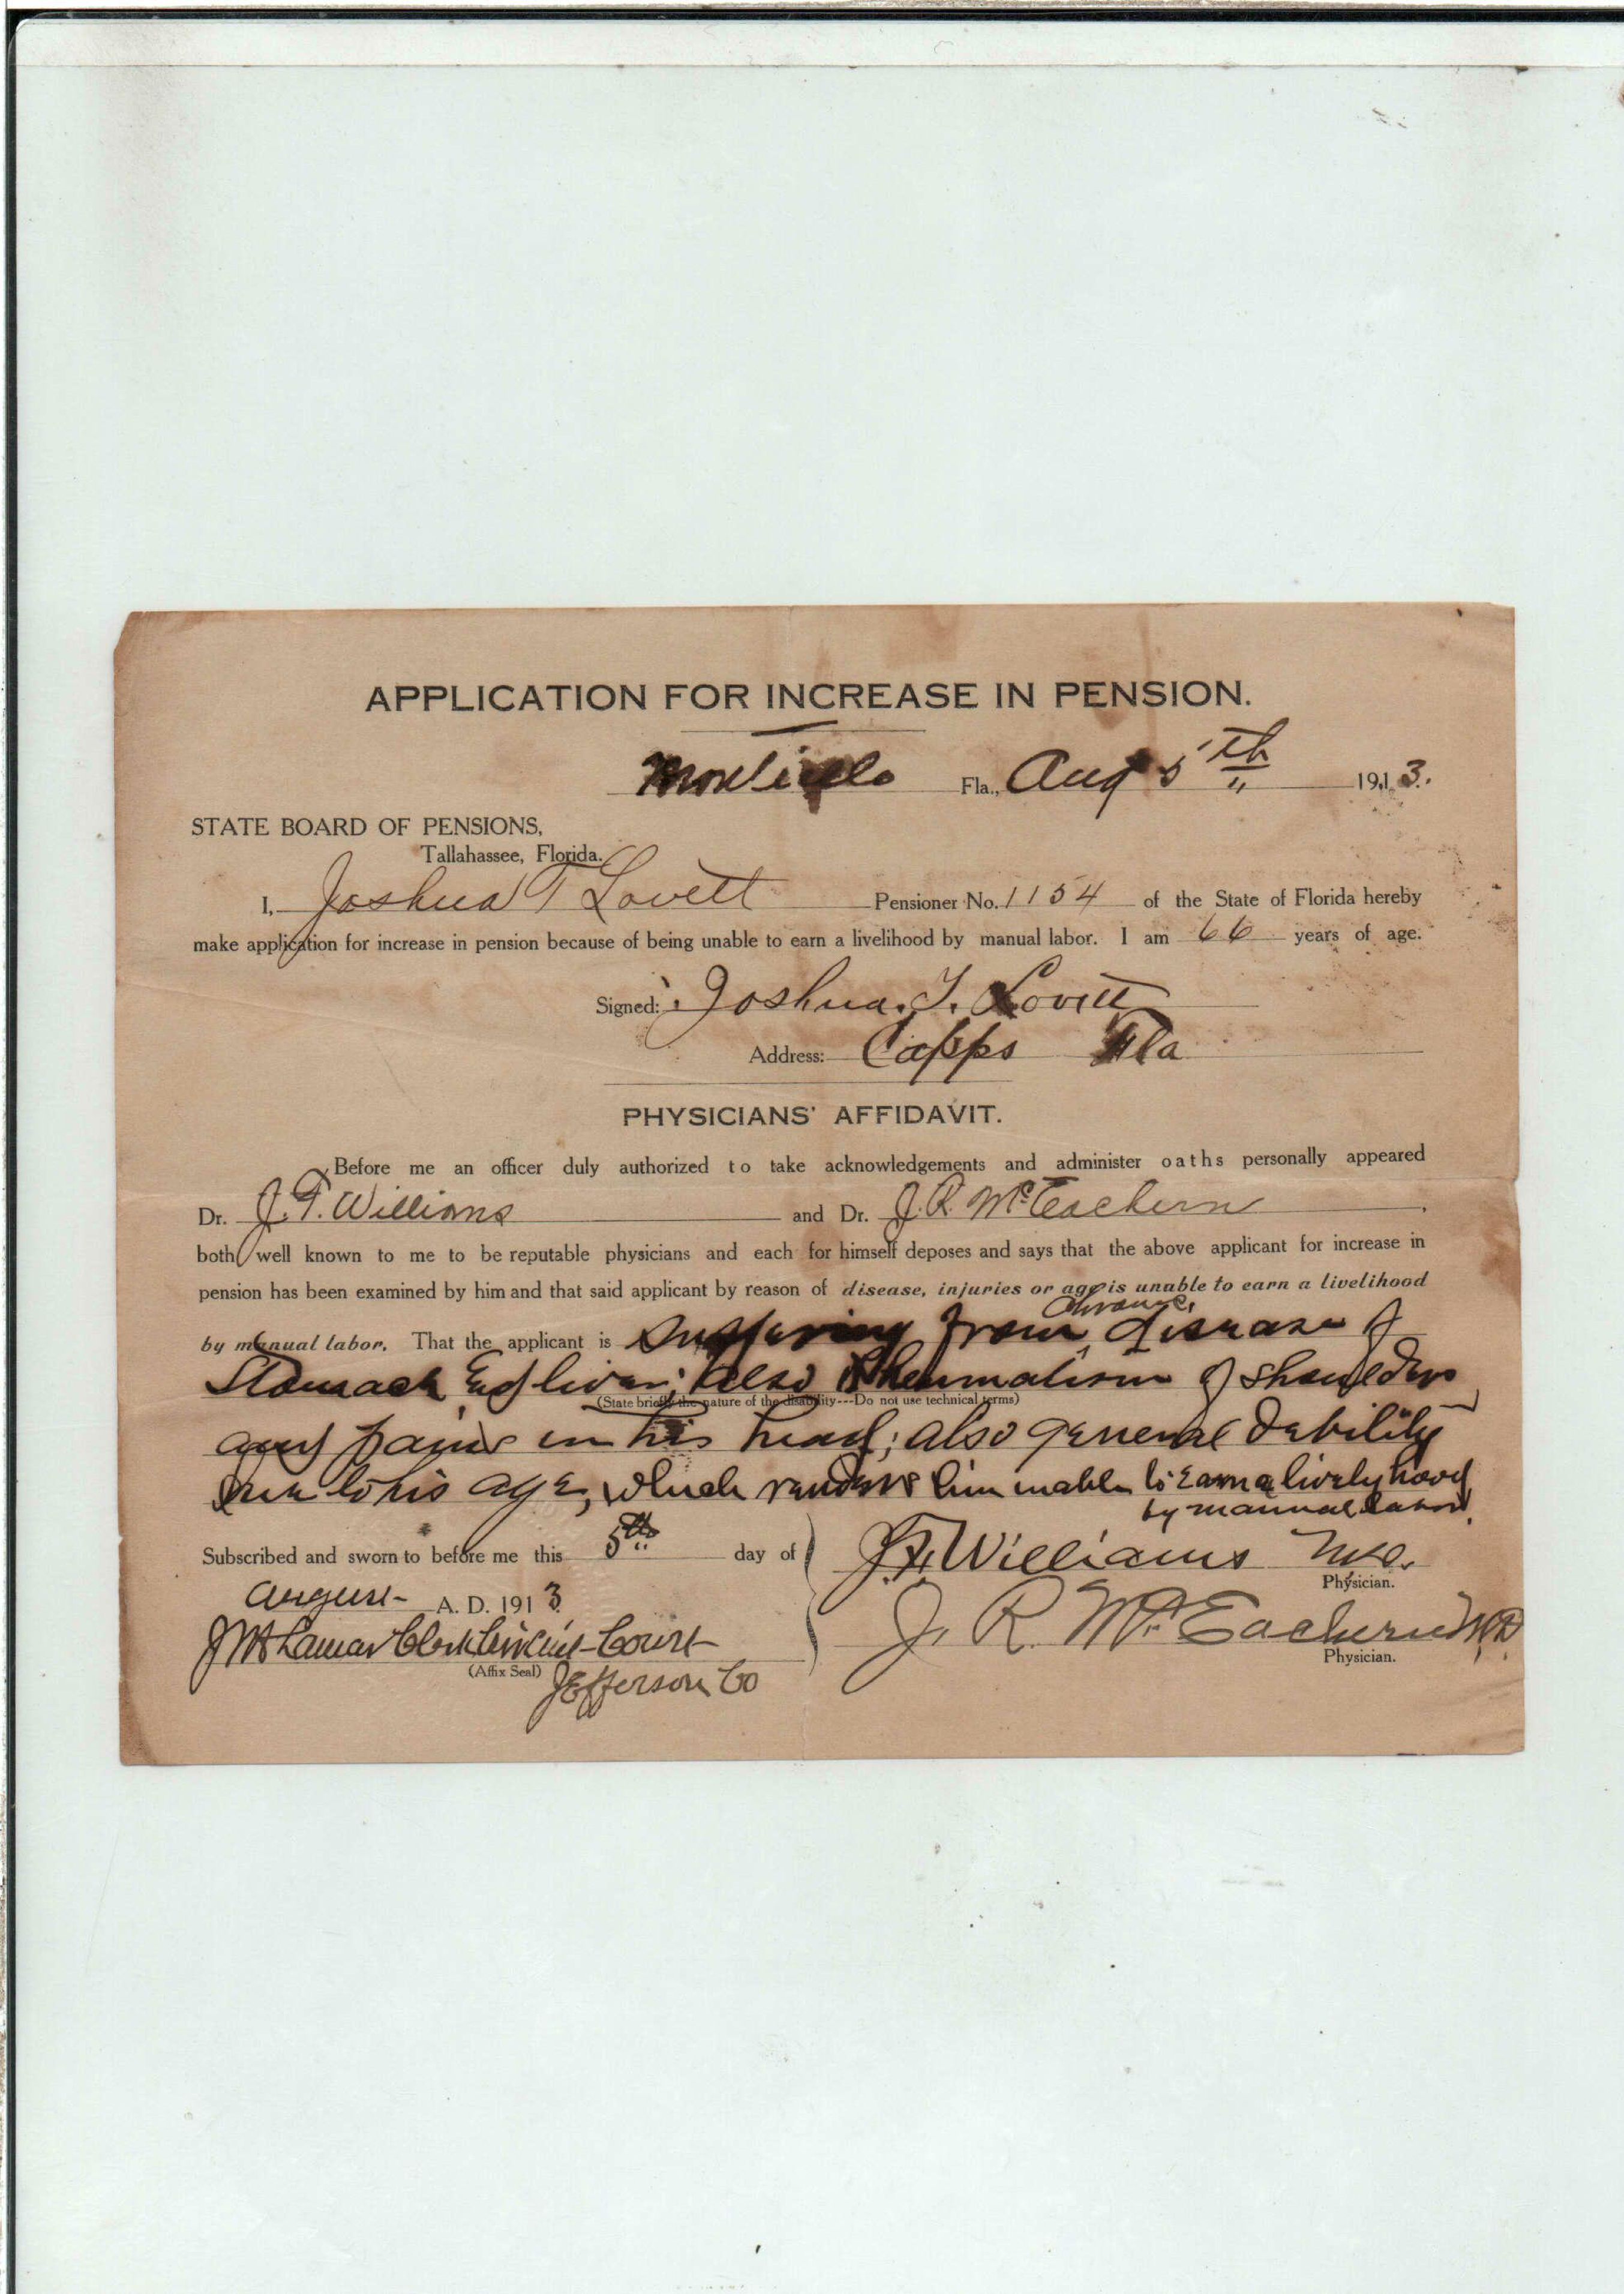 APPLICATION FOR INCREASE IN PENSION.
Monticello Fla., Aug 5th 1913.
STATE BOARD OF PENSIONS,
Tallahassee, Florida.
I, Joshua T Lovett Pensioner No. 1154 of the State of Florida hereby
make application for increase in pension because of being unable to earn a livelihood by manual labor. I am 66 years of age.
Signed: Joshua. T. Lovett
Address: Capps Fla
PHYSICIANS' AFFIDAVIT.
Before me an officer duly authorized to take acknowledgements and administer oaths personally appeared
Dr. J. T. Williams and Dr. J. R. McEachern
both well known to me to be reputable physicians and each for himself deposes and says that the above applicant for increase in
pension has been examined by him and that said applicant by reason of disease, injuries or age is unable to earn a livelihood
chronic
by manual labor. That the applicant is suffering from disease of
Stomach and liver; also Rheumatism of shoulders
(State briefly the nature of the disability---Do not use technical terms)
and pains in his head; also general debility
due to his age, which renders him unable to earn a livelyhood
by manual labor.
Subscribed and sworn to before me this 5th day of
August A. D. 1913
J. T. Williams MD.
Physician.
J. R. McEachern M.D.
Physician.
Lamar Clerk Circuit Court
(Affix Seal)
Jefferson Co